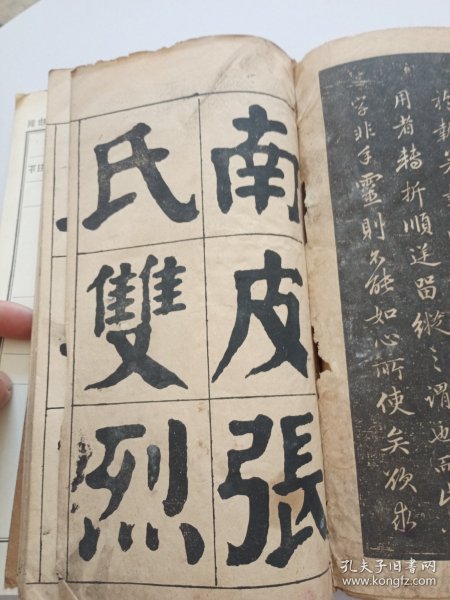 南皮張
氏雙烈
用者轉折順逆留縱之謂也而出
字非手靈則不能如心所使矣欲求
孔夫子旧书网
www.kongfz.com